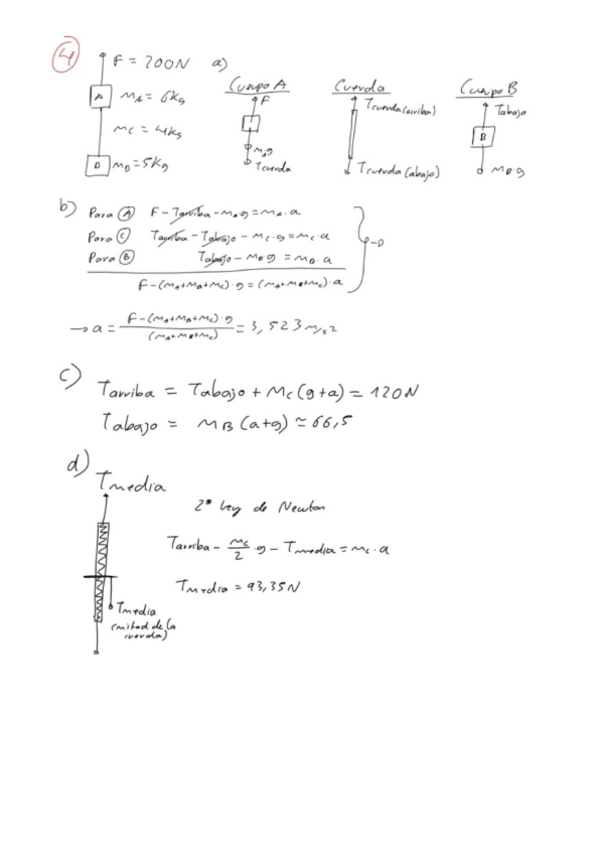 4
F = 200N a)
A mA = 6kg
mC = 4kg
B mB = 5kg
Cuerpo A
F
mAg
Tcuerda
Cuerda
Tcuerda (arriba)
Tcuerda (abajo)
Cuerpo B
Tabajo
B
mB g
b) Para A F - Tarriba - mA g = mA · a
Para C Tarriba - Tabajo - mC · g = mC · a
Para B Tabajo - mB g = mB · a
F - (mA + mB + mC) · g = (mA + mB + mC) · a
→ a = F - (mA + mB + mC) · g / (mA + mB + mC) = 3,523 m/s2
c) Tarriba = Tabajo + mC (g + a) = 120N
Tabajo = mB (a + g) ≈ 66,5
d)
Tmedia
2ª Ley de Newton
Tarriba - mC/2 · g - Tmedia = mC · a
Tmedia = 93,35N
Tmedia
(mitad de la
cuerda)